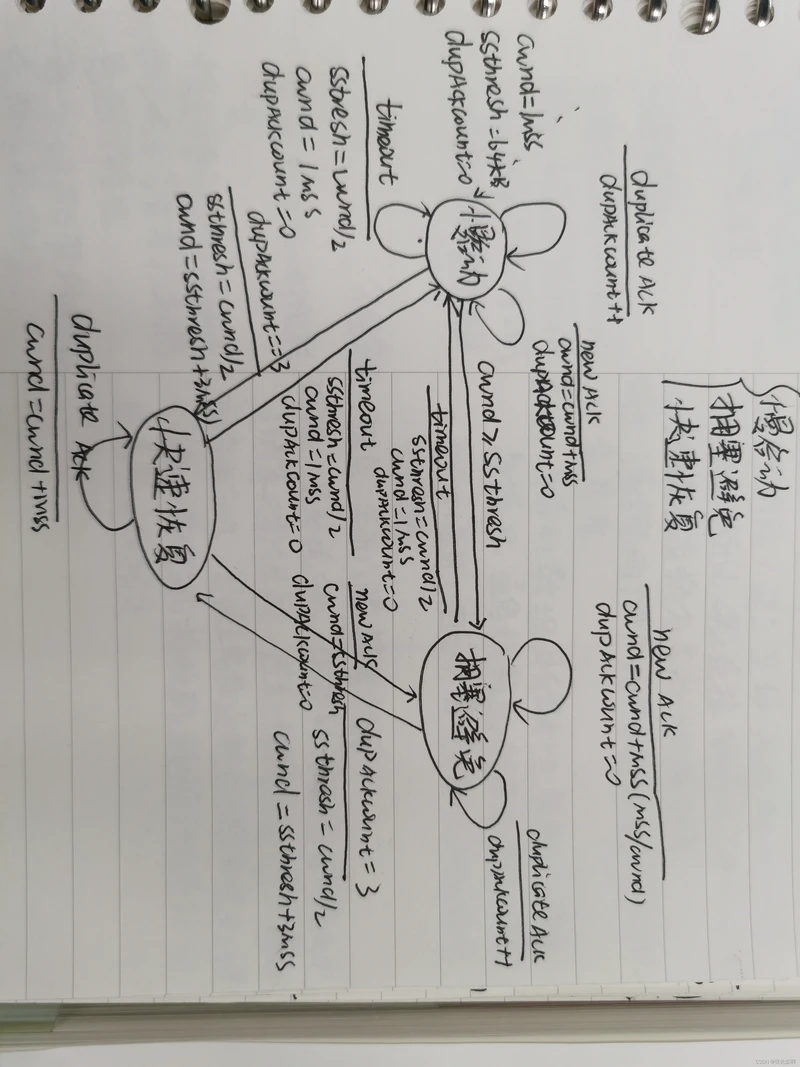 慢启动
拥塞避免
快速恢复
duplicate ACK
dupAckcount++
new ACK
cwnd=cwnd+MSS(MSS/cwnd)
dupAckcount=0
cwnd=1MSS
ssthresh=64KB
dupAckcount=0
new ACK
cwnd=cwnd+MSS
dupAckcount=0
duplicate ACK
dupAckcount++
慢启动
cwnd≥ssthresh
拥塞避免
timeout
sstresh=cwnd/2
cwnd=1MSS
dupAckcount=0
timeout
ssthresh=cwnd/2
cwnd=1MSS
dupAckcount=0
timeout
ssthresh=cwnd/2
cwnd=1MSS
dupAckcount=0
new ACK
cwnd=ssthresh
dupAckcount=0
dupAckcount=3
ssthrash=cwnd/2
cwnd=ssthresh+3MSS
dupAckcount==3
ssthresh=cwnd/2
cwnd=ssthresh+3MSS
快速恢复
duplicate ACK
cwnd=cwnd+MSS